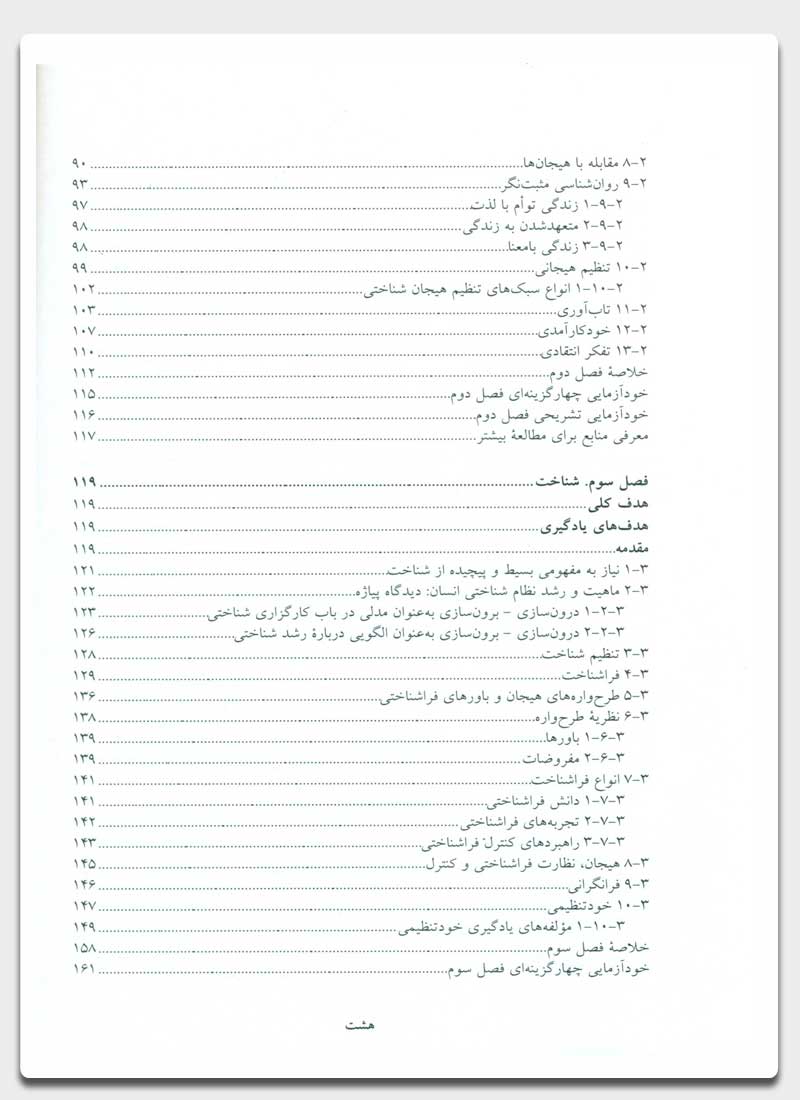 ۸-۲ مقابله با هیجان‌ها ........ ۹۰
۹-۲ روان‌شناسی مثبت‌نگر ........ ۹۳
۱-۹-۲ زندگی توأم با لذت ........ ۹۷
۲-۹-۲ متعهدشدن به زندگی ........ ۹۸
۳-۹-۲ زندگی بامعنا ........ ۹۸
۱۰-۲ تنظیم هیجانی ........ ۹۹
۱-۱۰-۲ انواع سبک‌های تنظیم هیجان شناختی ........ ۱۰۲
۱۱-۲ تاب‌آوری ........ ۱۰۳
۱۲-۲ خودکارآمدی ........ ۱۰۷
۱۳-۲ تفکر انتقادی ........ ۱۱۰
خلاصهٔ فصل دوم ........ ۱۱۲
خودآزمایی چهارگزینه‌ای فصل دوم ........ ۱۱۵
خودآزمایی تشریحی فصل دوم ........ ۱۱۶
معرفی منابع برای مطالعهٔ بیشتر ........ ۱۱۷
فصل سوم. شناخت ........ ۱۱۹
هدف کلی ........ ۱۱۹
هدف‌های یادگیری ........ ۱۱۹
مقدمه ........ ۱۱۹
۱-۳ نیاز به مفهومی بسیط و پیچیده از شناخت ........ ۱۲۱
۲-۳ ماهیت و رشد نظام شناختی انسان: دیدگاه پیاژه ........ ۱۲۲
۱-۲-۳ درون‌سازی – برون‌سازی به‌عنوان مدلی در باب کارگزاری شناختی ........ ۱۲۳
۲-۲-۳ درون‌سازی – برون‌سازی به‌عنوان الگویی دربارهٔ رشد شناختی ........ ۱۲۶
۳-۳ تنظیم شناخت ........ ۱۲۸
۴-۳ فراشناخت ........ ۱۲۹
۵-۳ طرح‌واره‌های هیجان و باورهای فراشناختی ........ ۱۳۶
۶-۳ نظریهٔ طرح‌واره ........ ۱۳۸
۱-۶-۳ باورها ........ ۱۳۹
۲-۶-۳ مفروضات ........ ۱۳۹
۷-۳ انواع فراشناخت ........ ۱۴۱
۱-۷-۳ دانش فراشناختی ........ ۱۴۱
۲-۷-۳ تجربه‌های فراشناختی ........ ۱۴۲
۳-۷-۳ راهبردهای کنترل فراشناختی ........ ۱۴۳
۸-۳ هیجان، نظارت فراشناختی و کنترل ........ ۱۴۵
۹-۳ فرانگرانی ........ ۱۴۶
۱۰-۳ خودتنظیمی ........ ۱۴۷
۱-۱۰-۳ مؤلفه‌های یادگیری خودتنظیمی ........ ۱۴۹
خلاصهٔ فصل سوم ........ ۱۵۸
خودآزمایی چهارگزینه‌ای فصل سوم ........ ۱۶۱
هشت